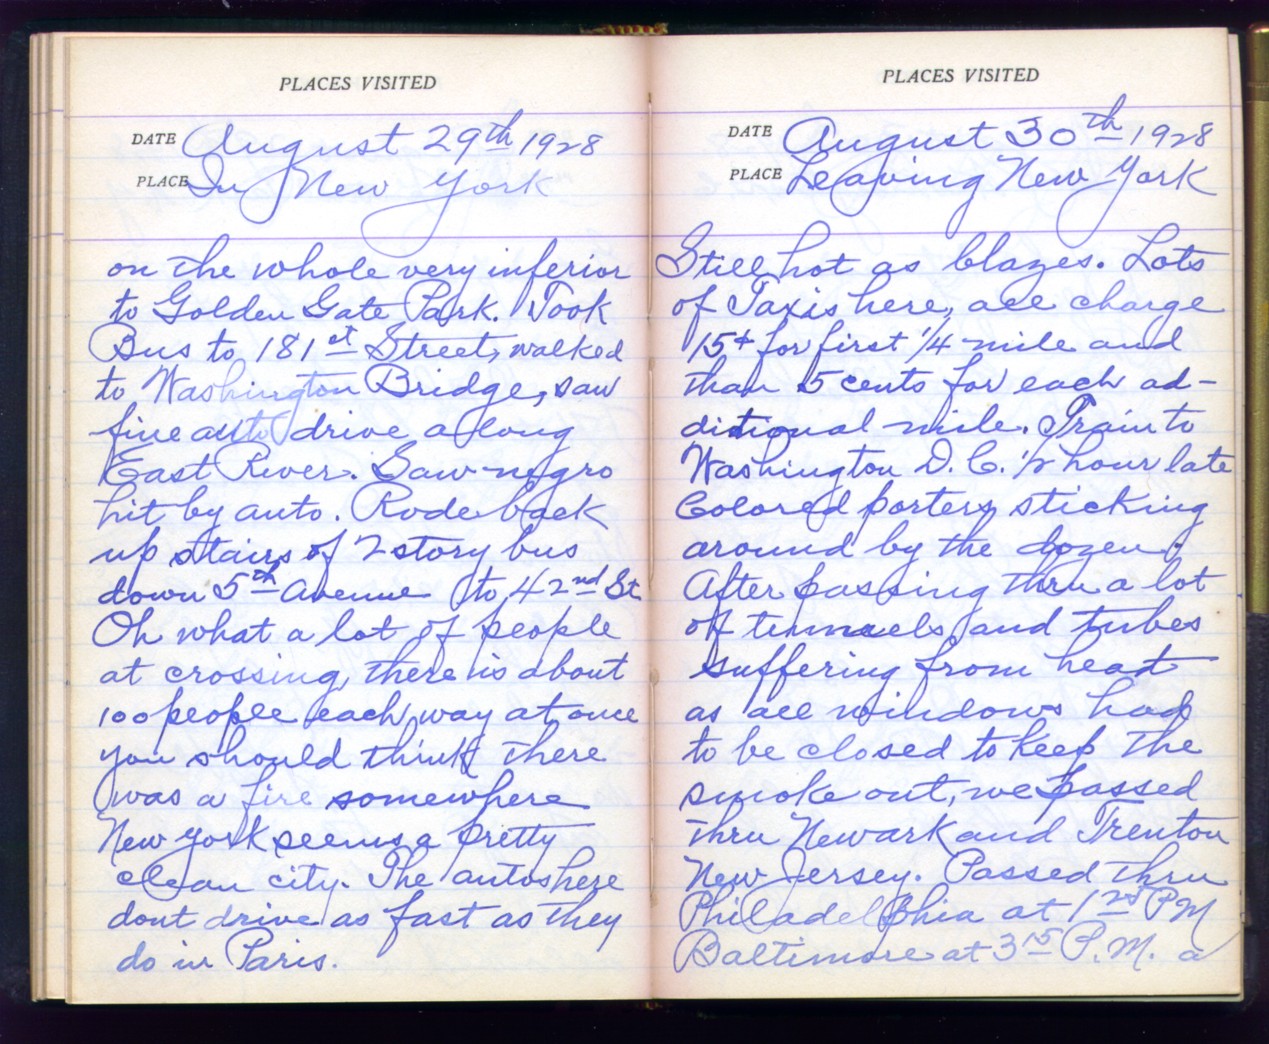 PLACES VISITED
DATE August 29th 1928
PLACE In New York
on the whole very inferior
to Golden Gate Park. Took
Bus to 181st Street, walked
to Washington Bridge, saw
fine auto drive along
East River. Saw negro
hit by auto. Rode back
up stairs of 2 story bus
down 5th Avenue to 42nd St
Oh what a lot of people
at crossing, there is about
100 people each way at once
you should think there
was a fire somewhere
New York seems a pretty
clean city. The autos here
dont drive as fast as they
do in Paris.
PLACES VISITED
DATE August 30th 1928
PLACE Leaving New York
Still hot as blazes. Lots
of Taxis here, all charge
15¢ for first 1/4 mile and
than 5 cents for each ad-
ditional mile. Train to
Washington D.C. 1/2 hour late
Colored porters sticking
around by the dozen.
After passing thru a lot
off tunnels and tubes
suffering from heat
as all windows had
to be closed to keep the
smoke out, we passed
thru Newark and Trenton
New Jersey. Passed thru
Philadelphia at PM
Baltimore at 3 15 P.M. a